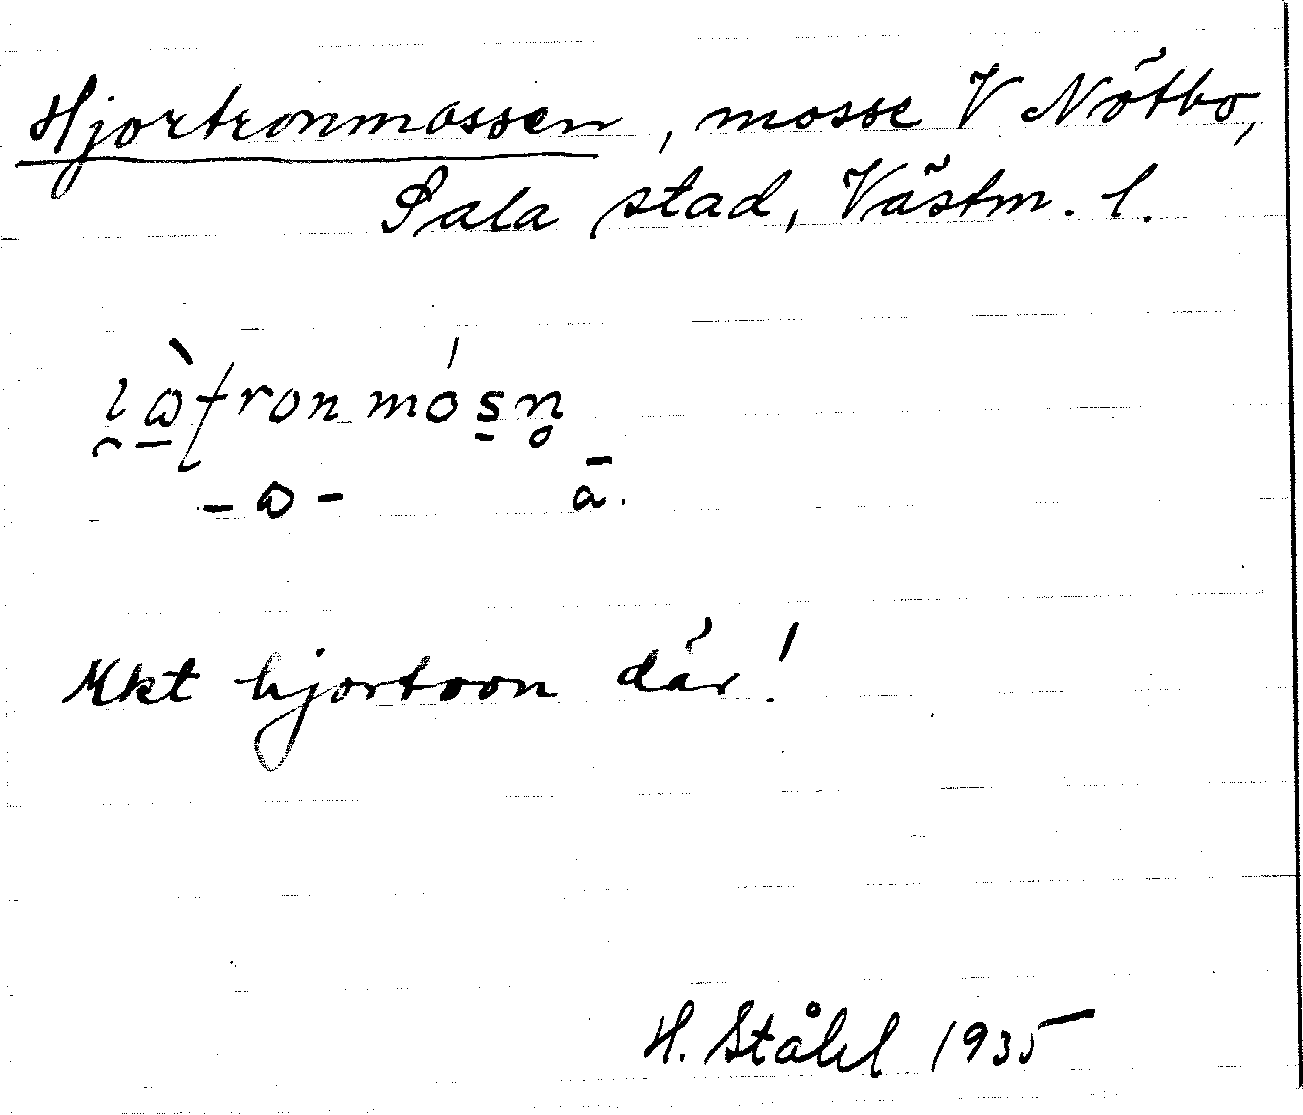 Hjortronmossen, mosse V Nötbo,
Sala stad, Västm. l.
Mkt hjortron där!
H. Ståhl 1935